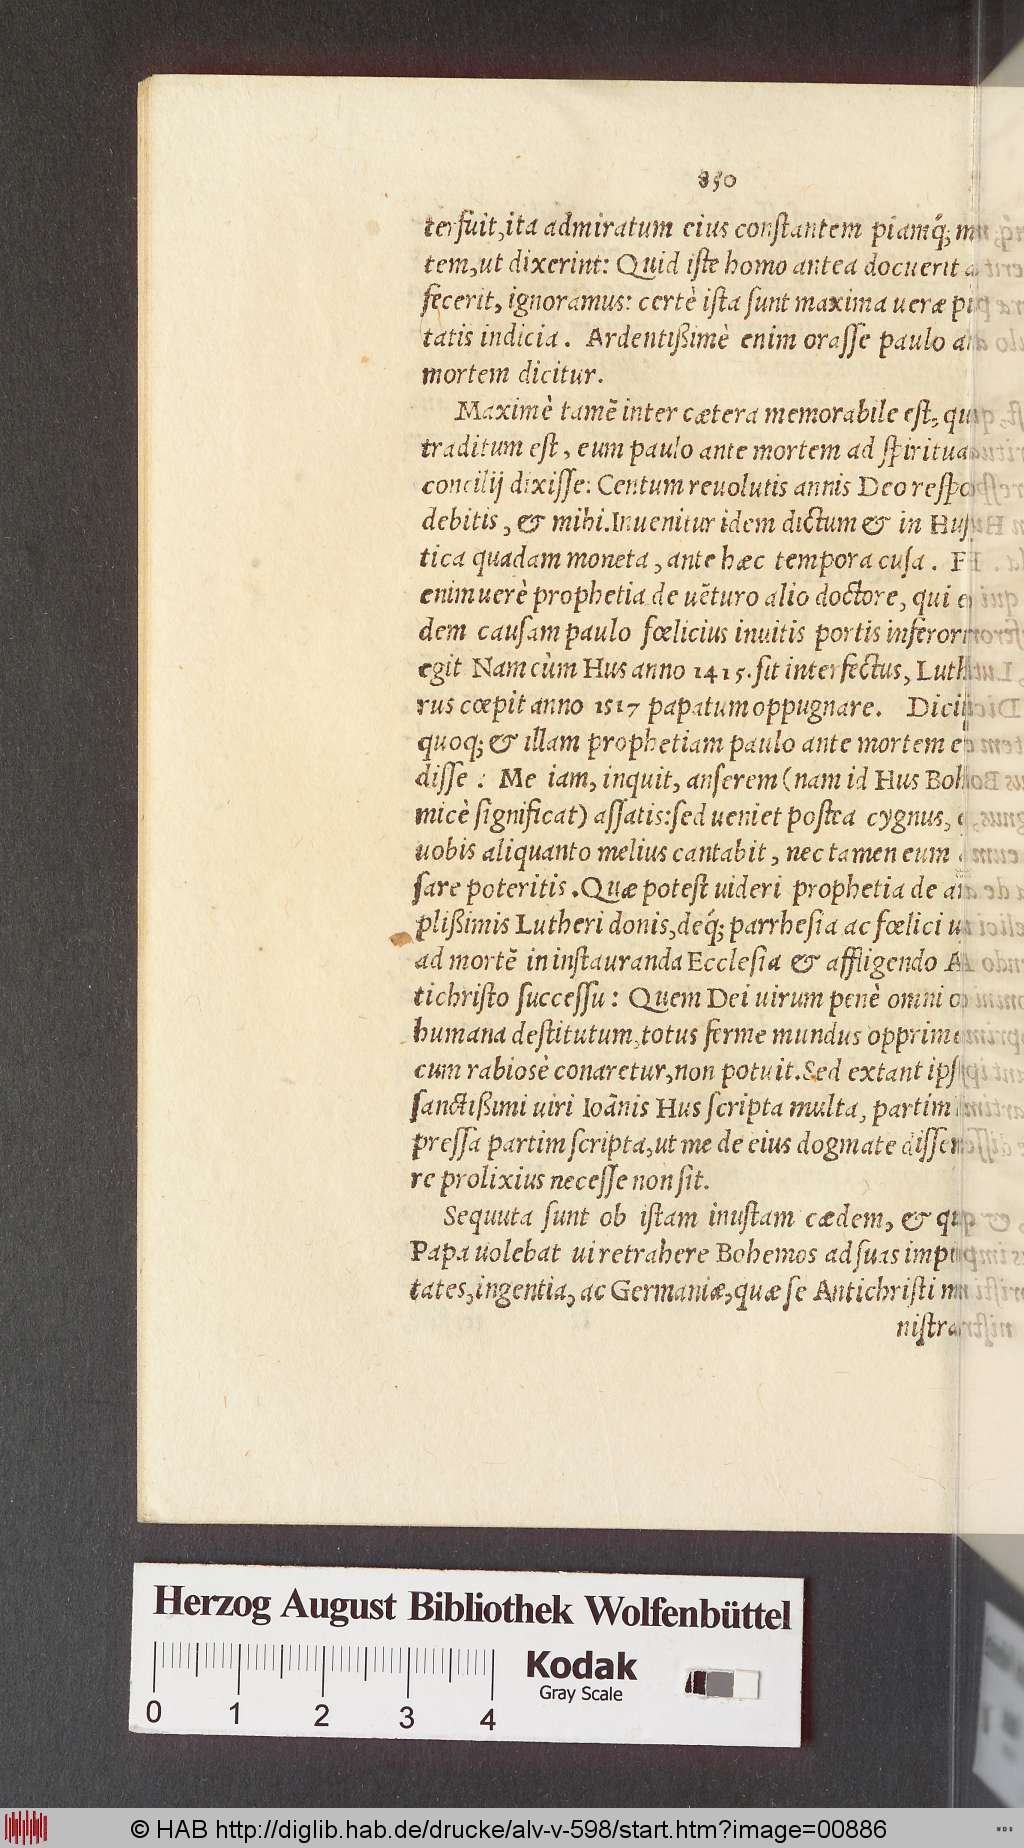 850
terfuit, ita admiratum eius constantem piamq́;
tem, ut dixerint: Quid iste homo antea docuerit
fecerit, ignoramus: certè ista sunt maxima ueræ
tatis indicia. Ardentißimè enim orasse paulo
mortem dicitur.
Maximè tamē inter cætera memorabile est,
traditum est, eum paulo ante mortem ad
concilij dixisse: Centum reuolutis annis Deo
debitis, & mihi. Inuenitur idem dictum & in
tica quadam moneta, ante hæc tempora cusa.
enimuerè prophetia de uēturo alio doctore, qui
dem causam paulo fœlicius inuitis portis
egit Nam cùm Hus anno 1415. sit interfectus,
rus cœpit anno 1517 papatum oppugnare.
quoq; & illam prophetiam paulo ante mortem
disse: Me iam, inquit, anserem (nam id Hus
micè significat) assatis: sed ueniet postea cygnus,
uobis aliquanto melius cantabit, nec tamen eum
sare poteritis. Quæ potest uideri prophetia de
plißimis Lutheri donis, deq́; parrhesia ac fœlici
ad mortē in instauranda Ecclesia & affligendo
tichristo successu: Quem Dei uirum penè omni
humana destitutum, totus ferme mundus
cum rabiosè conaretur, non potuit. Sed extant
sanctißimi uiri Ioānis Hus scripta multa, partim
pressa partim scripta, ut me de eius dogmate
re prolixius necesse non sit.
Sequuta sunt ob istam iniustam cædem, &
Papa uolebat ui retrahere Bohemos ad suas
tates, ingentia, ac Germaniæ, quæ se Antichristi
Herzog August Bibliothek Wolfenbüttel
0 1 2 3 4
Kodak
Gray Scale
© HAB http://diglib.hab.de/drucke/alv-v-598/start.htm?image=00886